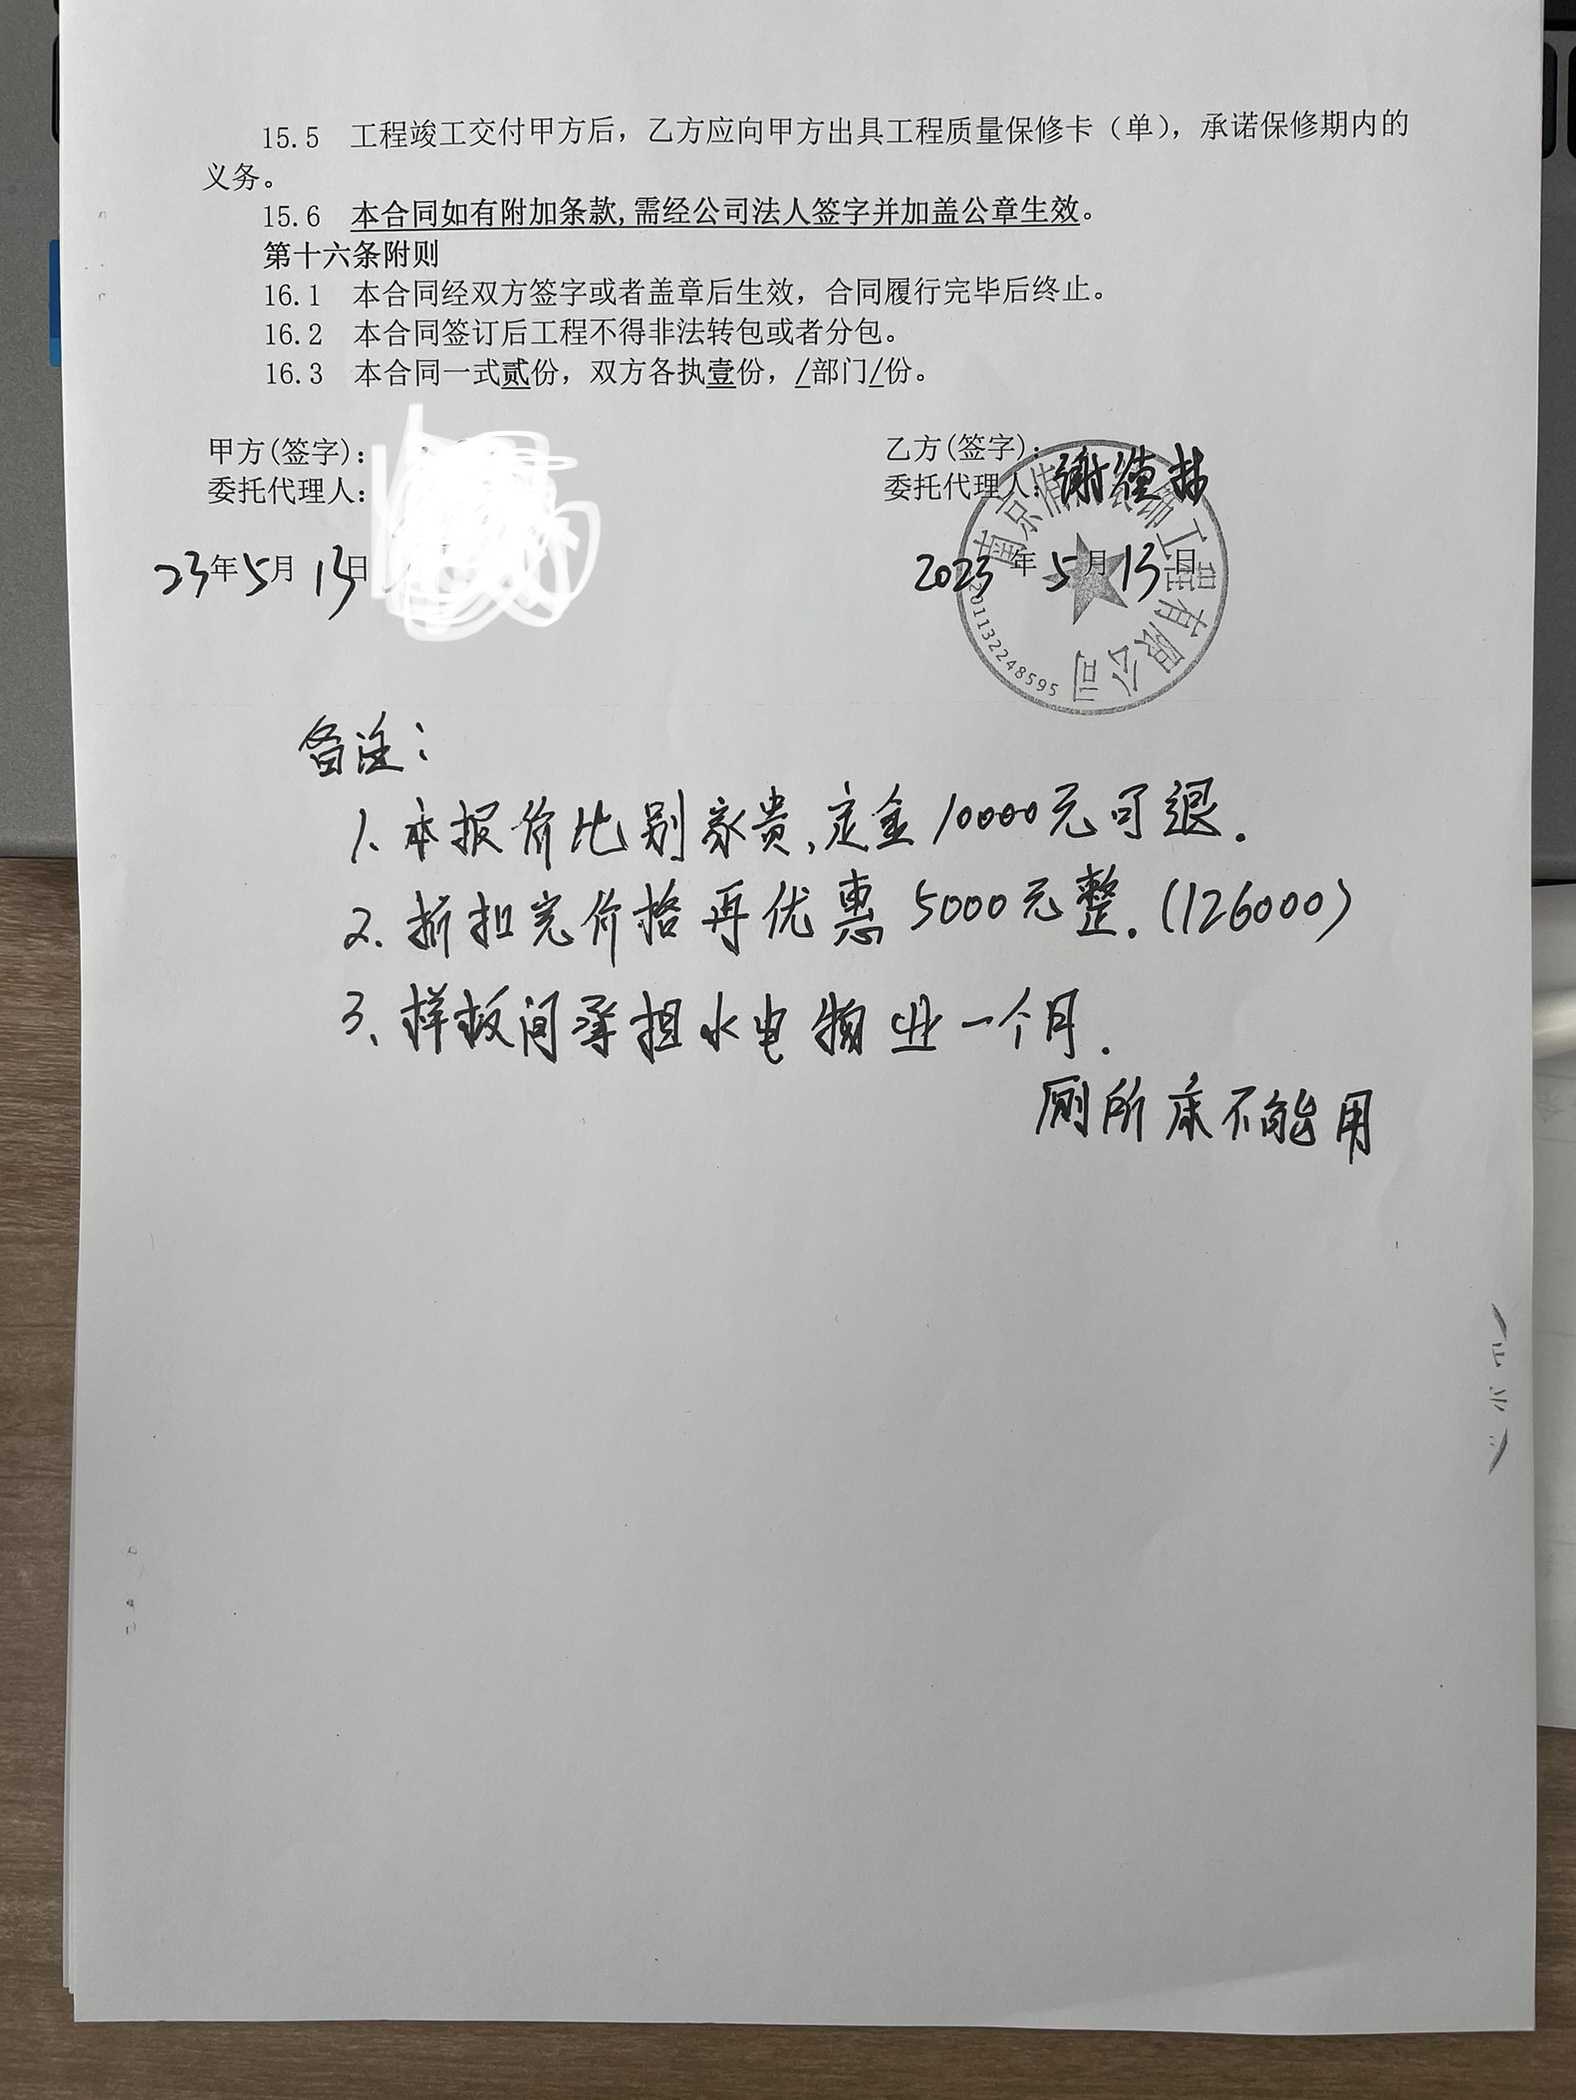 15.5 工程竣工交付甲方后，乙方应向甲方出具工程质量保修卡（单），承诺保修期内的
义务。
15.6 本合同如有附加条款，需经公司法人签字并加盖公章生效。
第十六条附则
16.1 本合同经双方签字或者盖章后生效，合同履行完毕后终止。
16.2 本合同签订后工程不得非法转包或者分包。
16.3 本合同一式贰份，双方各执壹份，/部门/份。
甲方(签字)：
委托代理人：
23年5月13日
乙方(签字)：
委托代理人：谢德林
2023年5月13日
南京 工程有限公司
201132248595
备注：
1、本报价比别家贵，定金10000元可退.
2、折扣完价格再优惠5000元整.(126000)
3、样板间承担水电物业一个月.
厕所床不能用